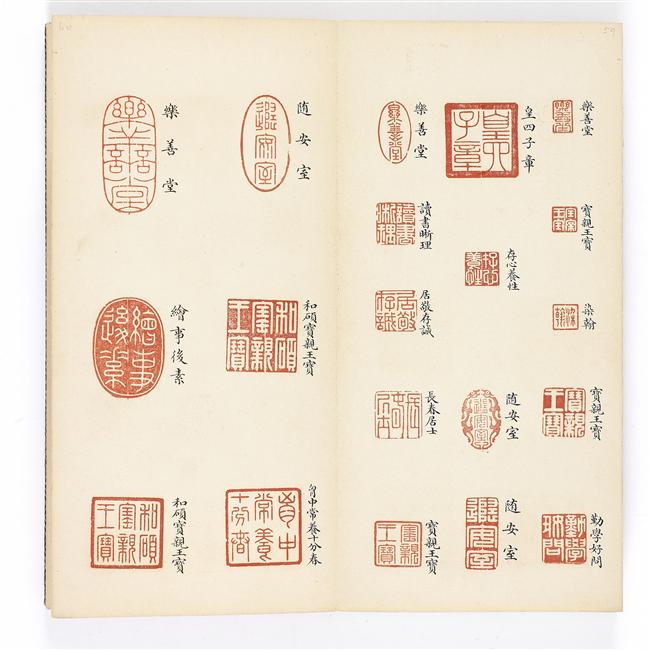 59
樂善堂
寶親王寶
染翰
寶親王寶
勤學好問
皇四子章
存心養性
随安室
随安室
樂善堂
讀書晰理
居敬存誠
長春居士
寶親王寶
随安室
和碩寶親王寶
胷中常養十分春
樂善堂
繪事後素
和碩寶親王寶